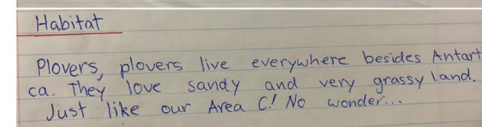 Habitat
Plovers, plovers live everywhere besides Antart
ca. They love sandy and very grassy land.
Just like our Area C! No wonder...